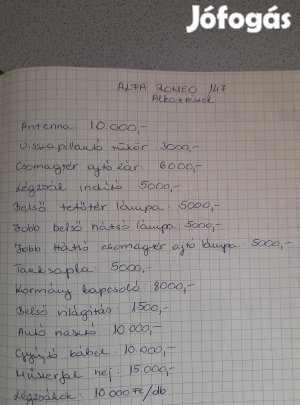 Jófogás
ALFA ROMEO 147
Alkatrészek
Antenna 10.000,-
Visszapillantó tükör 3000,-
Csomagtér ajtó zár: 6000,-
Légzsák indító 5000,-
Belső tetőtér lámpa: 5000,-
Jobb belső hátsó lámpa: 5000,-
Jobb Hátsó csomagtér ajtó lámpa: 5000,-
Tanksapka: 5000,-
Kormány kapcsoló: 8000,-
Belső világítás: 1500,-
Autó riasztó: 10.000,-
Gyújtó kábel: 10.000,-
Műszerfal héj: 15.000,-
Légzsákok: 10.000 Ft/db